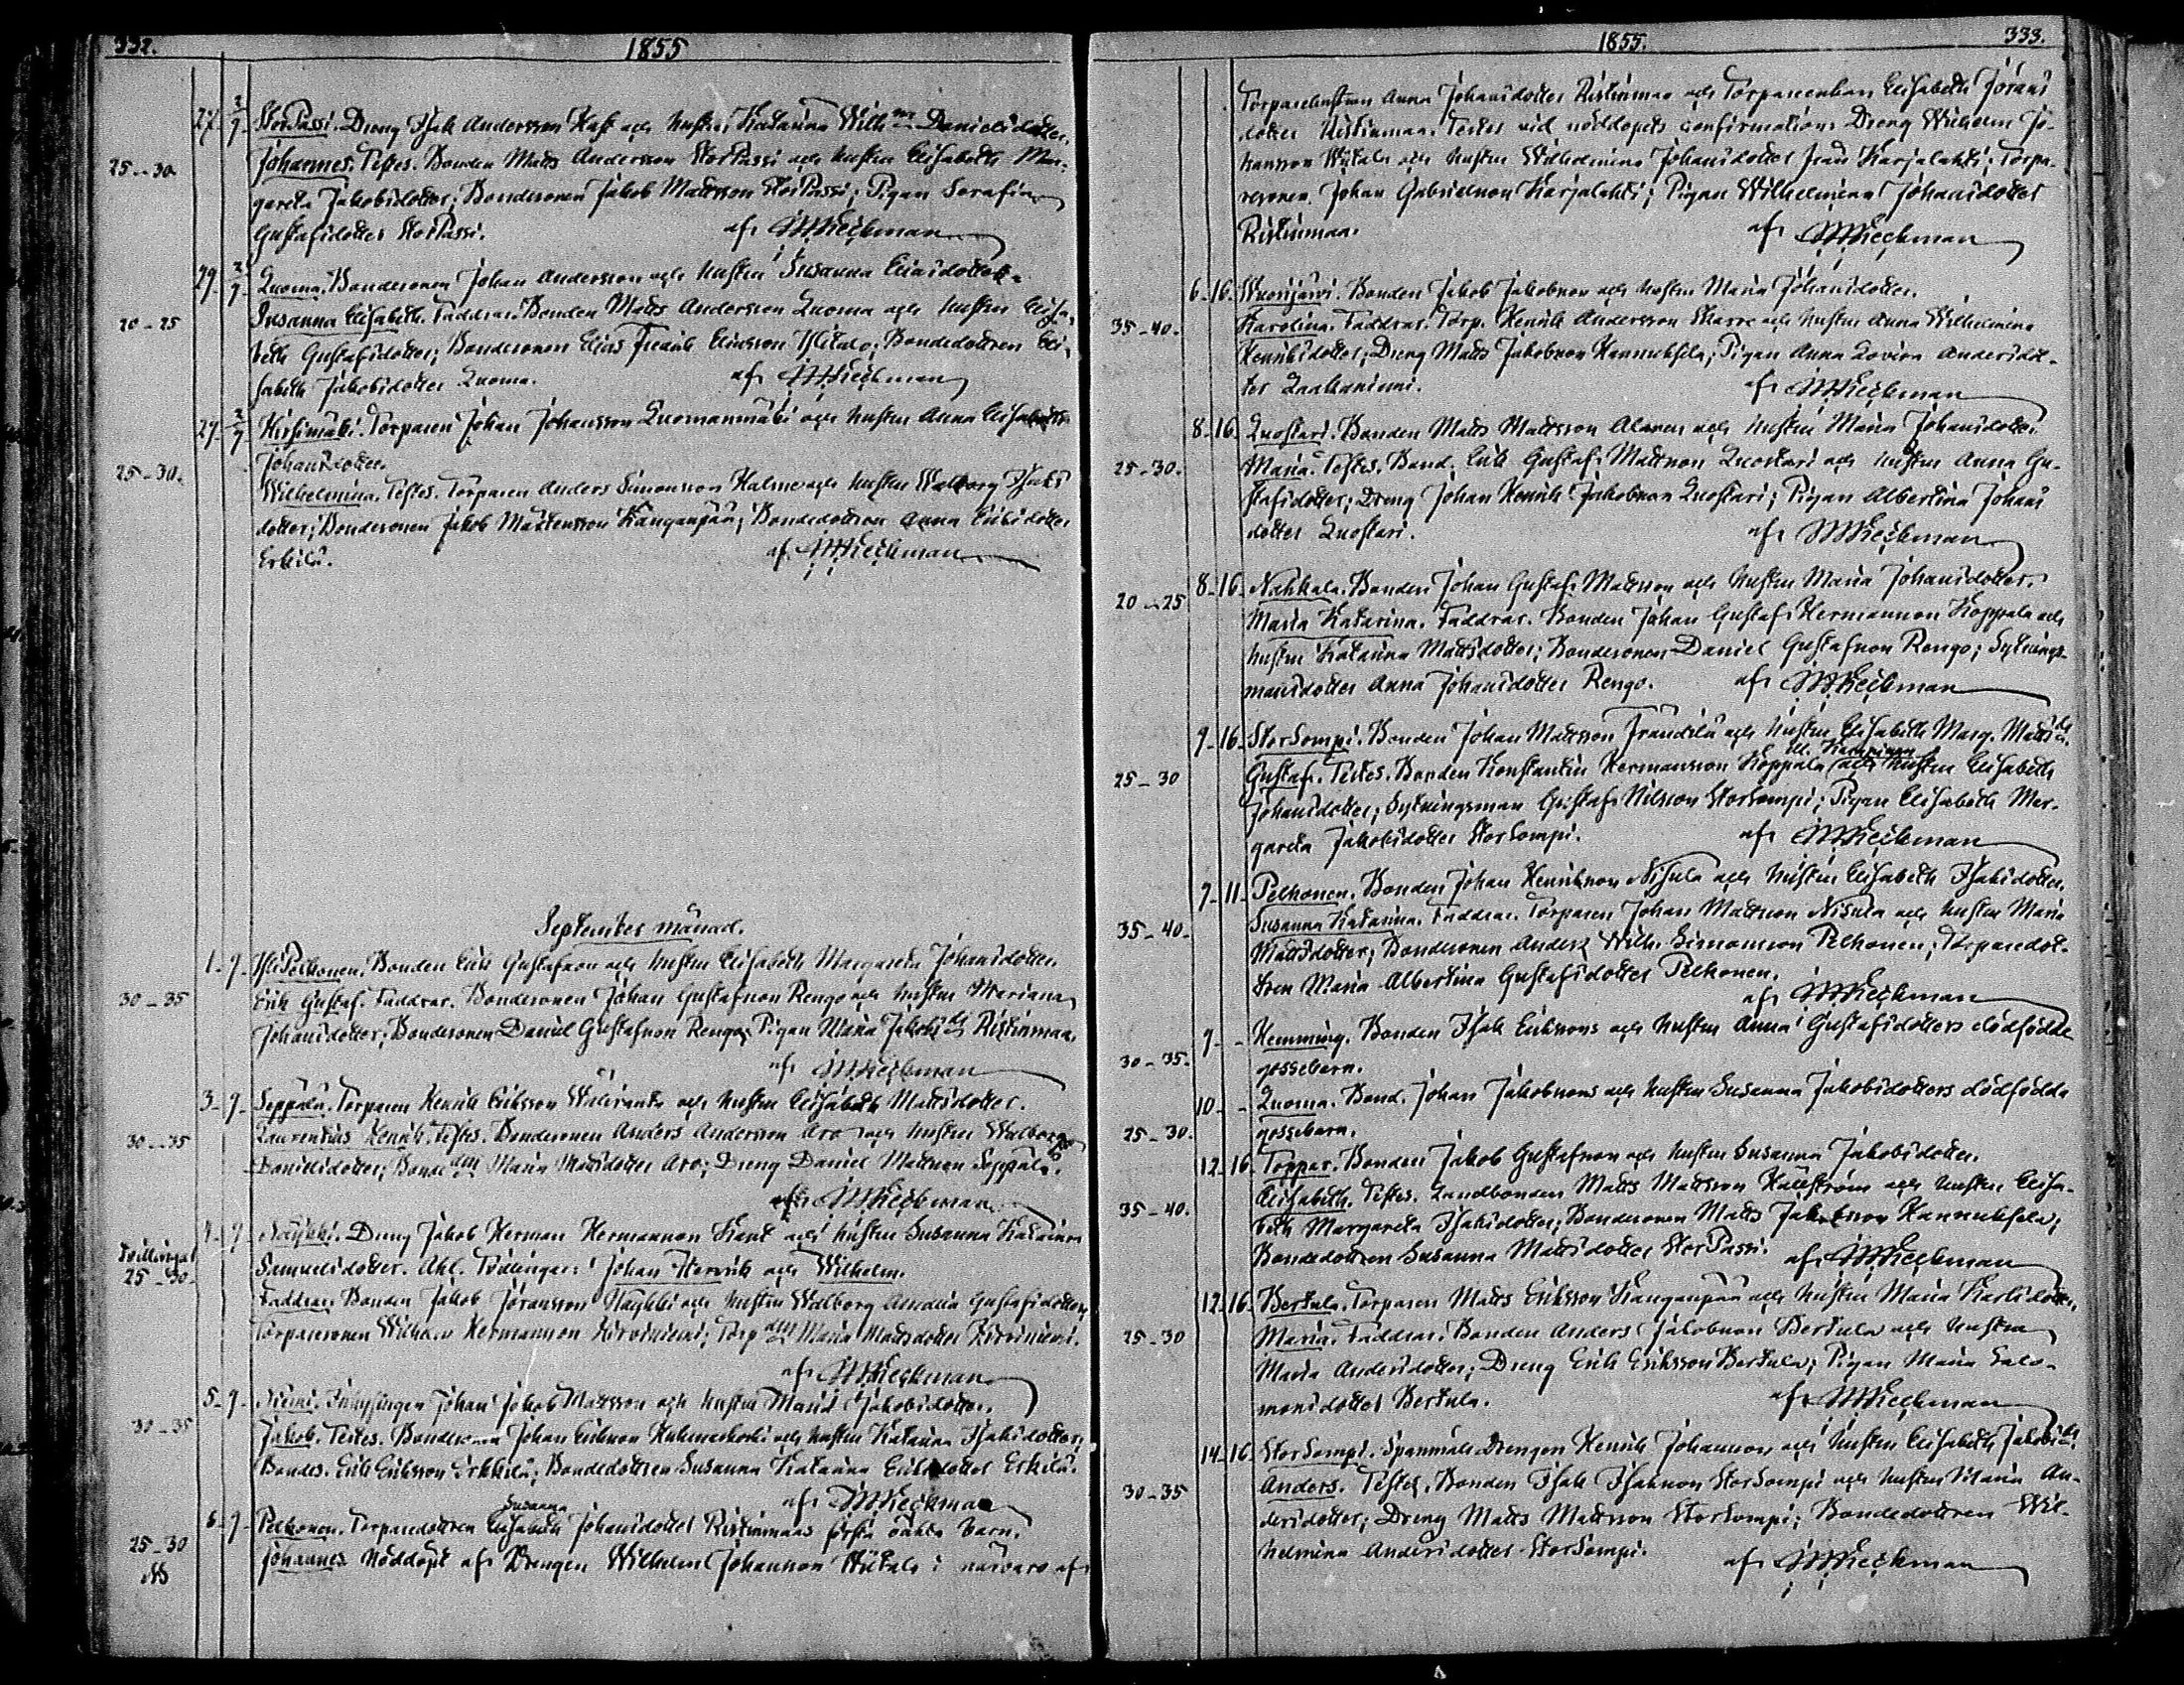 332. 1855
27 2/9 StorPassi. Dreng Isak Andersson Kass och hustru Katarina Wilh:na Danielsdotter.
25-30. Johannes. Testes. Bonden Matts Andersson StorPassi och hustru Elisabeth Mar-
gareta Jakobsdotter; Bondesonen Jakob Mattsson StorPassi; Pigan Serafina
Gustafsdotter StorPassi. af
29 2/9 Luoma. Bondesonen Johan Andersson och hustru Susanna Eliasdotter.
20-25 Susanna Elisabeth. Faddrar. Bonden Matts Andersson Luoma och hustru Elisa-
beth Gustafsdotter; Bondesonen Elias Fredrik Eliasson Ylitalo; Bondedottren Eli-
sabeth Jakobsdotter Luoma. af
27 2/9 Hirsimäki. Torparen Johan Johansson Luomanmäki och hustru Anna Elisabeth
Johansdotter.
25-30. Wilhelmina. Testes. Torparen Anders Simonsson Halme och hustru Walborg Isaks
dotter; Bondesonen Jakob Mårtensson Kangaspää; Bondedottren Anna Eriksdotter
Erkilä. af
September månad.
1-9 YliPelkonen. Bonden Erik Gustafsson och hustru Elisabeth Margareta Johansdotter.
30-35 Erik Gustaf. Faddrar. Bondesonen Johan Gustafsson Rengo och hustru Mariana
Johansdotter; Bondesonen Daniel Gustafsson Rengo; Pigan Maria Jakobsdr Ristinmaa.
af
3-9 Seppälä. Torparen Henrik Eriksson och hustru Elisabeth Mattsdotter.
30-35 Laurentius Henrik. Testes. Bondesonen Anders Andersson Aro och hustru Walborg
Danielsdotter; Bonde dtn Maria Mattsdotter Aro; Dreng Daniel Mattsson Seppälä.
af
4-9 Näykki. Dreng Jakob Herman Hermansson och hustru Susanna Katarina
Tvillingar
25-30. Samuelsdotter. Äkt. Tvillingar: Johan Henrik och Wilhelm.
Faddrar. Bonden Jakob Jöransson Näykki och hustru Walborg Amalia Gustafsdotter;
Torparesonen Wilhelm Hermansson Hirviniemi; Torp dtn Maria Mattsdotter Hirviniemi.
af
5-9 Niemi. Inhysingen Johan Jakob Mattsson och hustru Maria Jakobsdotter.
30-35 Jakob. Testes. Bondesonen Johan Eriksson Kuhmuskoski och hustru Katarina Isaksdotter;
Bondes. Erik Eriksson Erkkilä; Bondedottren Susanna Katarina Eriksdotter Erkilä.
af
Susanna
6-9 Pelkonen. Torparedottren Elisabeth Johansdotter Ristinmaas första oäkta barn.
25-30 Johannes Nöddöpt af Drengen Wilhelm Johansson Wiitala i närvaro af
1855. 333.
Torparehustrun Anna Johansdotter Ristinmaa och Torpareenkan Elisabeth Jörans
dotter Ristinmaa. Testes vid nöddopets confirmation: Dreng Wilhelm Jo-
hansson Wiitala och hustru Wilhelmina Johansdotter från Karjalahti; Torpa-
resonen Johan Gabrielsson Karjalahti; Pigan Wilhelmina Johansdotter
Ristinmaa. af
6-16. Wuorijärvi. Bonden Jakob Jakobsson och hustru Maria Johansdotter.
35-40. Karolina. Faddrar. Torp. Henrik Andersson och hustru Anna Wilhelmina
Henriksdotter; Dreng Matts Jakobsson Hannuksela; Pigan Anna Lovisa Andersdot-
ter Laakaniemi. af
8-16. Luostari. Bonden Matts Mattsson Alanen och hustru Maria Johansdotter.
25-30. Maria. Testes. Bond. Erik Gustaf Mattsson Luostari och hustru Anna Gu-
stafsdotter; Dreng Johan Henrik Jakobsson Luostari; Pigan Albertina Johans
dotter Luostari. af
8-16. Nahkala. Bonden Johan Gustaf Mattsson och hustru Maria Johansdotter.
20-25 Maria Katarina. Faddrar. Bonden Johan Gustaf Hermansson Koppala och
hustru Katarina Mattsdotter; Bondesonen Daniel Gustafsson Rengo; Sytnings-
mansdotter Anna Johansdotter Rengo. af
9-16. StorSompi. Bonden Johan Mattsson Frändilä och hustru Elisabeth Marg. Mattsdr.
25-30 Gustaf. Testes. Bonden Konstantin Hermansson Koppala och hustru Elisabeth
Johansdotter; Sytningsman Gustaf Nilsson StorSompi; Pigan Elisabeth Mar-
gareta Jakobsdotter StorSompi. af
7-11 Pelkonen. Bonden Johan Henriksson Nisula och hustru Elisabeth Isaksdotter.
35-40. Susanna Katarina. Faddrar. Torparen Johan Mattsson Nisula och hustru Maria
Mattsdotter; Bondesonen Anders Wilh. Simonsson Pelkonen; Torparedot-
tren Maria Albertina Gustafsdotter Pelkonen. af
9- - Hemming. Bonden Isak Erikssons och hustru Anna Gustafsdotters dödfödda
30-35. gossebarn.
10- - Luoma. Bond. Johan Jakobssons och hustru Susanna Jakobsdotters dödfödda
25-30. gossebarn.
12-16. Toppar. Bonden Jakob Gustafsson och hustru Susanna Jakobsdotter.
35-40. Elisabeth. Testes. Landbonden Matts Mattsson Källström och hustru Elisa-
beth Margareta Isaksdotter; Bondesonen Matts Jakobsson Hannuksela;
Bondedottren Susanna Mattsdotter StorPassi. af
12-16. Bertula. Torparen Matts Eriksson Kangaspää och hustru Maria Karlsdotter.
25-30 Maria. Faddrar. Bonden Anders Jakobsson Bertula och hustru
Maria Andersdotter; Dreng Erik Eriksson Bertula; Pigan Maria Salo-
monsdotter Bertula. af
14-16 StorSompi. Spanmålsdrengen Henrik Johansson och hustru Elisabeth Jakobsdr.
30-35 Anders. Testes. Bonden Isak Isaksson StorSompi och hustru Maria An-
dersdotter; Dreng Matts Mattsson StorSompi; Bondedottren Wil-
helmina Andersdotter StorSompi. af